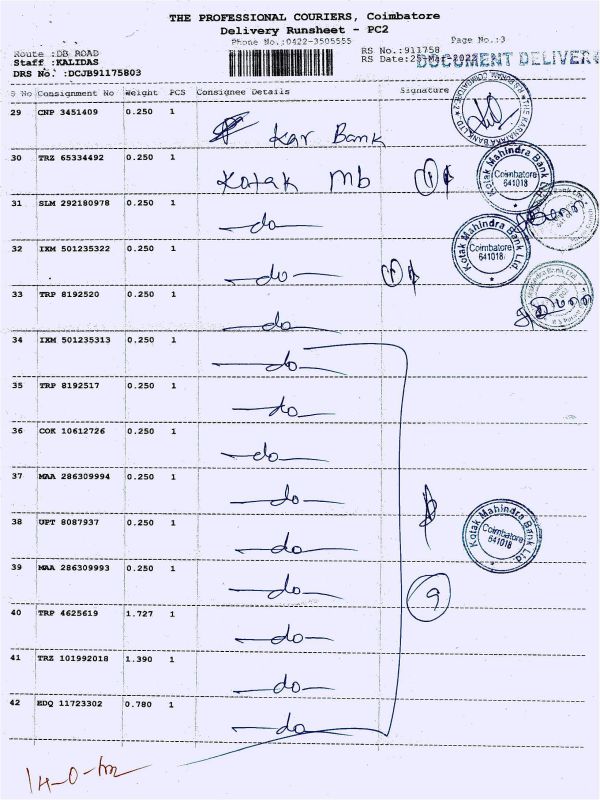 THE PROFESSIONAL COURIERS, Coimbatore
Delivery Runsheet - PC2
Phone No.:0422-3505555
Page No.:3
Route :DB ROAD
RS No.:911758
Staff :KALIDAS
RS Date:25-Mar-2022
DOCUMENT DELIVER
DRS No. :DCJB91175803
S No Consignment No Weight PCS Consignee Details Signature
29 CNP 3451409 0.250 1 Kar Bank
30 TRZ 65334492 0.250 1 Kotak Mb
Kotak Mahindra Bank Ltd
Coimbatore
641018
31 SLM 292180978 0.250 1 do
32 IXM 501235322 0.250 1 do
Kotak Mahindra Bank Ltd
Coimbatore
641018
33 TRP 8192520 0.250 1 do
34 IXM 501235313 0.250 1 do
35 TRP 8192517 0.250 1 do
36 COK 10612726 0.250 1 do
37 MAA 286309994 0.250 1 do
38 UPT 8087937 0.250 1 do
Kotak Mahindra Bank Ltd
Coimbatore
641018
39 MAA 286309993 0.250 1 do
9
40 TRP 4625619 1.727 1 do
41 TRZ 101992018 1.390 1 do
42 EDQ 11723302 0.780 1 do